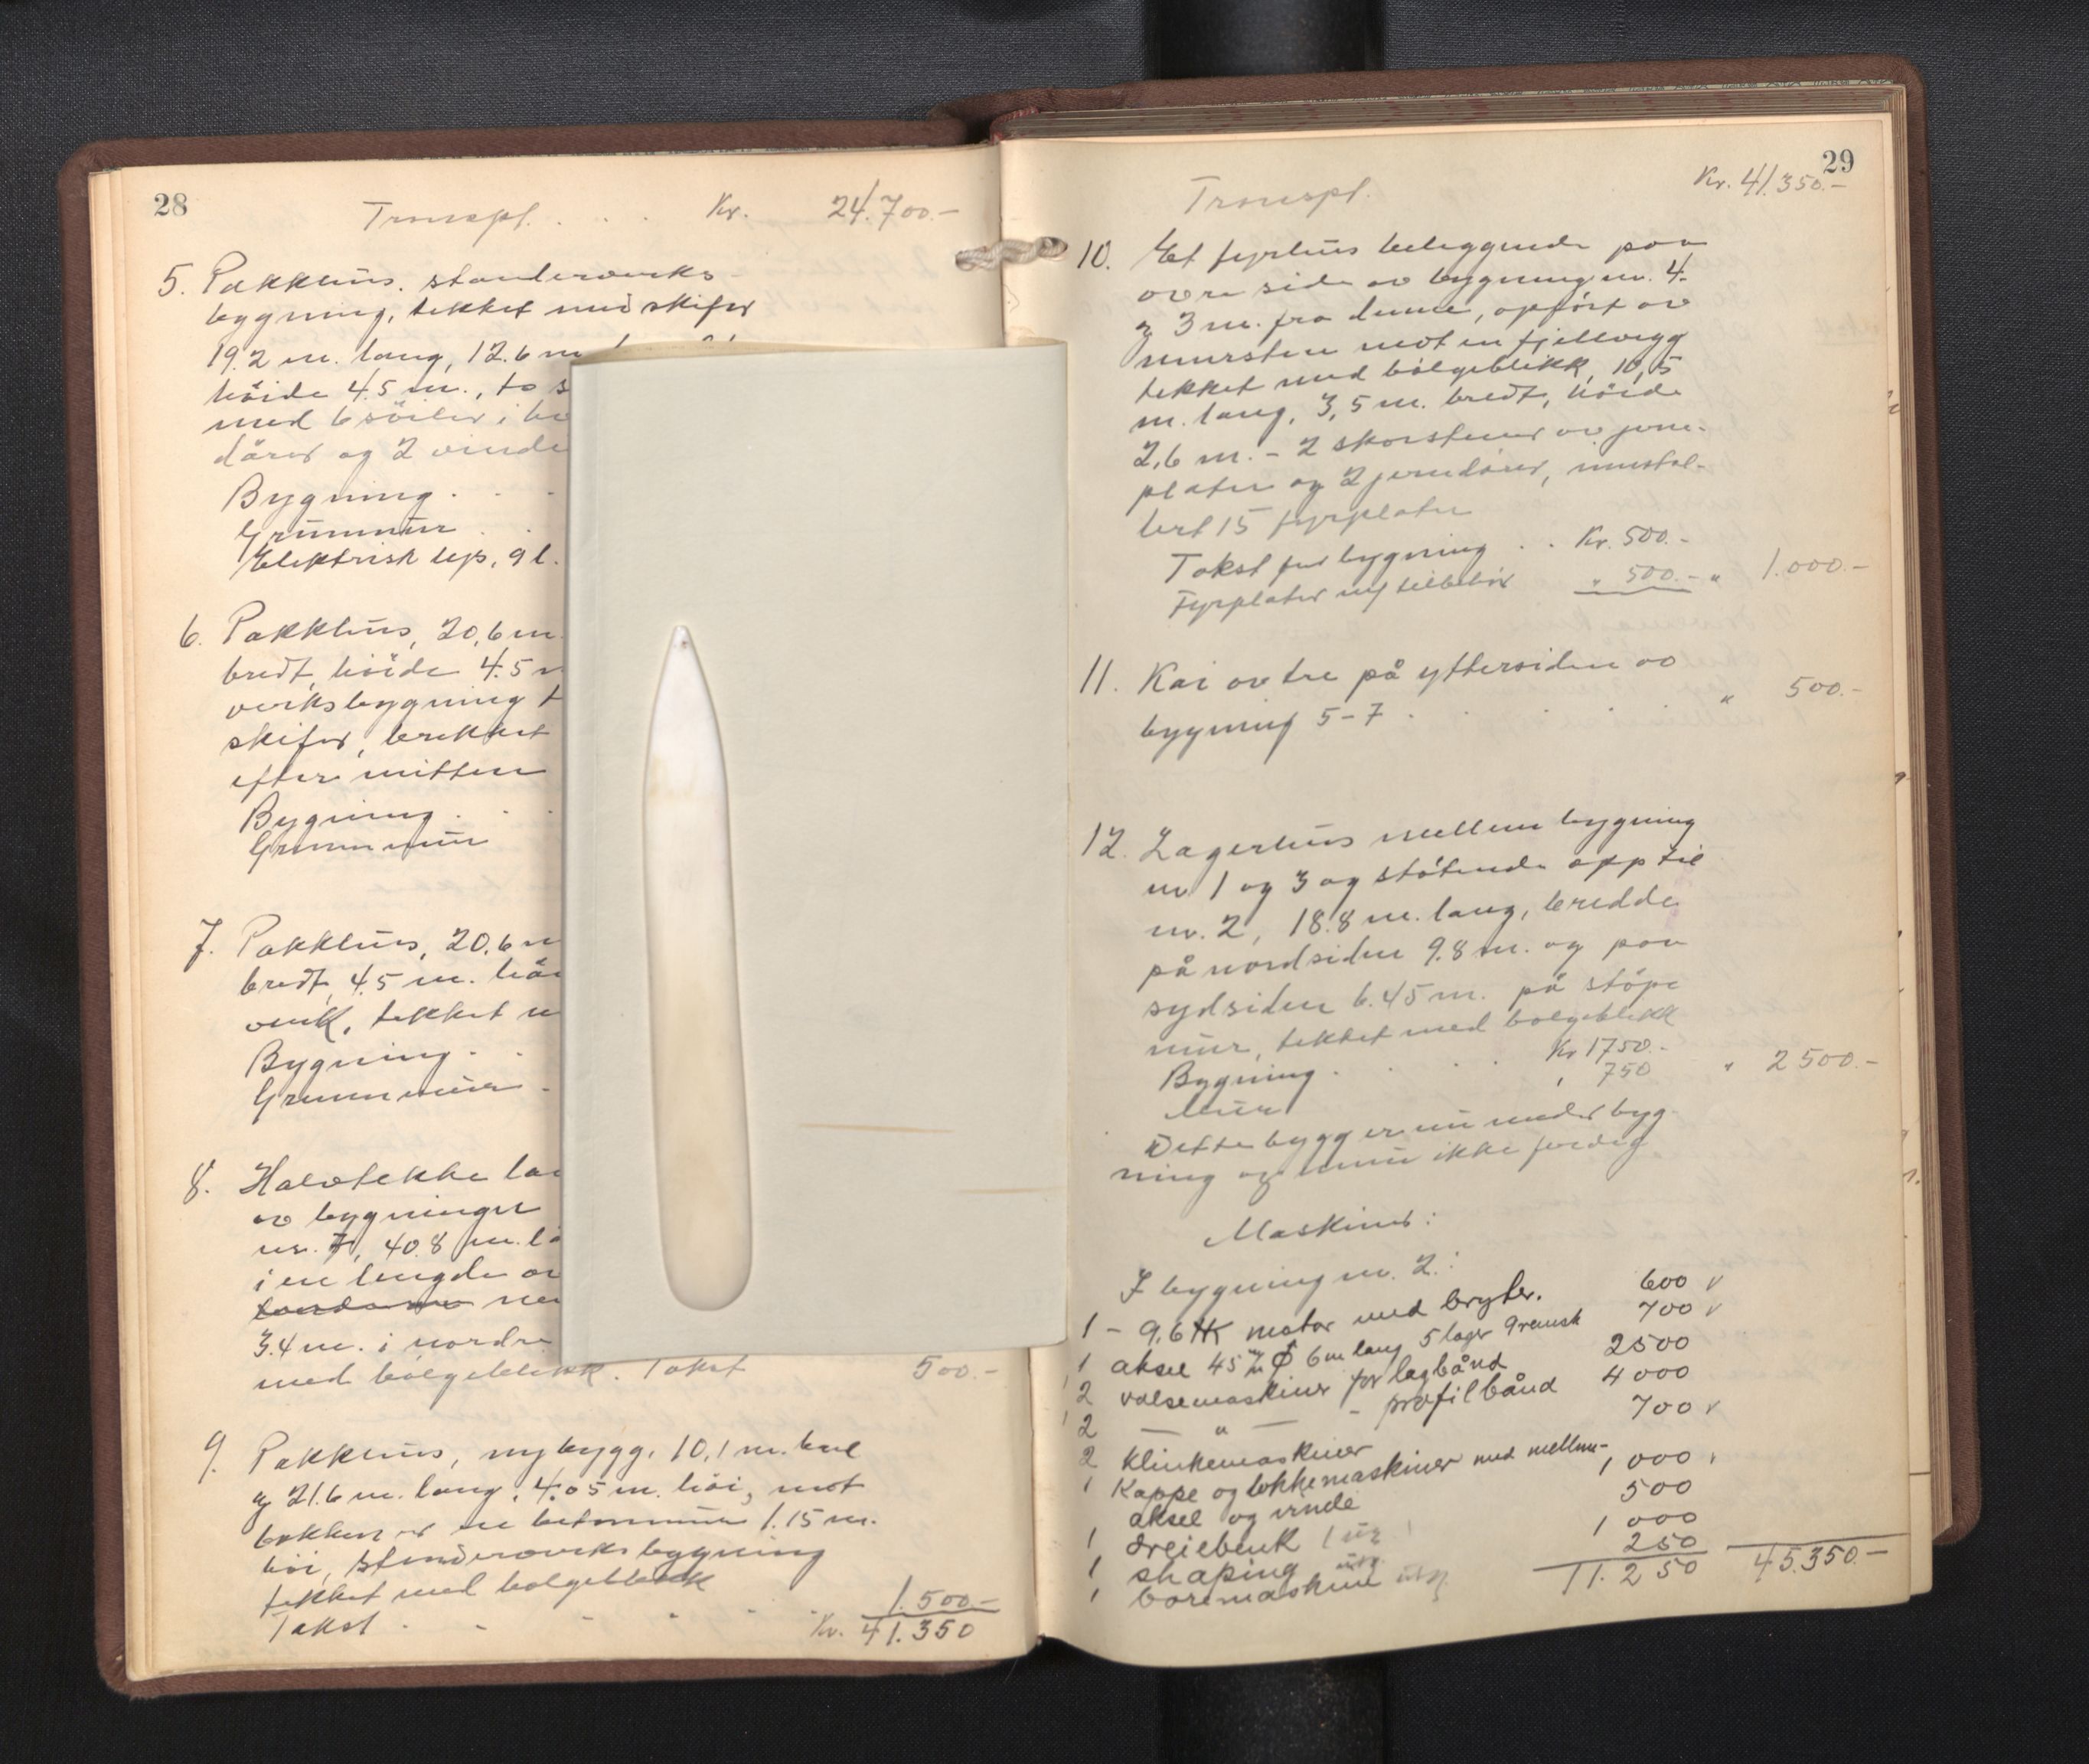 28
Transpt. . . . Kr. 24.700.-
5. Pakkhus. stenderverks
bygning, tekket med skifer
19.2 m. lang, 12.6 m
höide 4.5 m., to s
med 6 söiler i
dörer og 2 vinde
Bygning . . -
Grunnmur . .
Elektrisk lys, 9 l.
6. Pakkhus, 20,6 m.
bredt, höide 4.5
verksbygning t
skifer, brekket
efter mitten
Bygning . . -
Grunnmur
7. Pakkhus, 20,6 m
bredt, 4.5 m. höi
verk, tekket m
Bygning . .
Grunnmur -
8. Halvtekke
av bygninger
nr. 7, 40.8 m. l
i en lengde av
3.4 m. i nordre
med bølgeblikk. Takst 500.-
9. Pakkhus, nybygg, 10,1 m. bred
og 21.6 m. lang, 4.05 m. höi, mot
bakken er en betonmur 1.15 m.
höi, stenderverksbygning
tekket med bølgeblikk
Takst . - - - - 1.500.-
Kr. 41.350
29
Transpt. Kr. 41.350.-
10. Et fyrhus beliggende paa
øvre side av bygning nr. 4.
og 3 m. fra denne, opført av
mursten mot en fjellvegg
tekket med bølgeblikk, 10,5
m. lang, 3,5 m. bredt, höide
2,6 m. - 2 skorstener av jern-
plater og 2 jerndører, instal-
lert 15 fyrplater
Takst for bygning . . Kr. 500.-
Fyrplater m/ tilbehör " 500.- " 1.000.-
11. Kai av tre på yttersiden av
bygning 5-7 . . . . " 500.-
12. Lagerhus mellem bygning
nr. 1 og 3 og stötende opp til
nr. 2, 18.8 m. lang, bredde
på nordsiden 9.8 m. og paa
sydsiden 6.45 m. på støpe
mur, tekket med bølgeblikk
Bygning . . . . Kr 1750.-
Mur " 750 " 2500.-
Dette bygg er nu under byg-
ning og ennu ikke ferdig.
Maskiner:
I bygning nr. 2:
1 - 9,6 HK motor med bryter. 600 v
1 aksel 45 m/m Ø 6 m lang 5 lager 9 remsk 700 v
2 valsemaskiner for lagbånd 2500
2 — " — - profilbånd 4000
2 klinkemaskiner 700 v
1 Kappe og lokkemaskiner med mellem-
aksel og vinde 1 000
1 dreiebenk 500
1 shaping utg. 1 000
1 boremaskin utg. 250
11.250 45.350.-